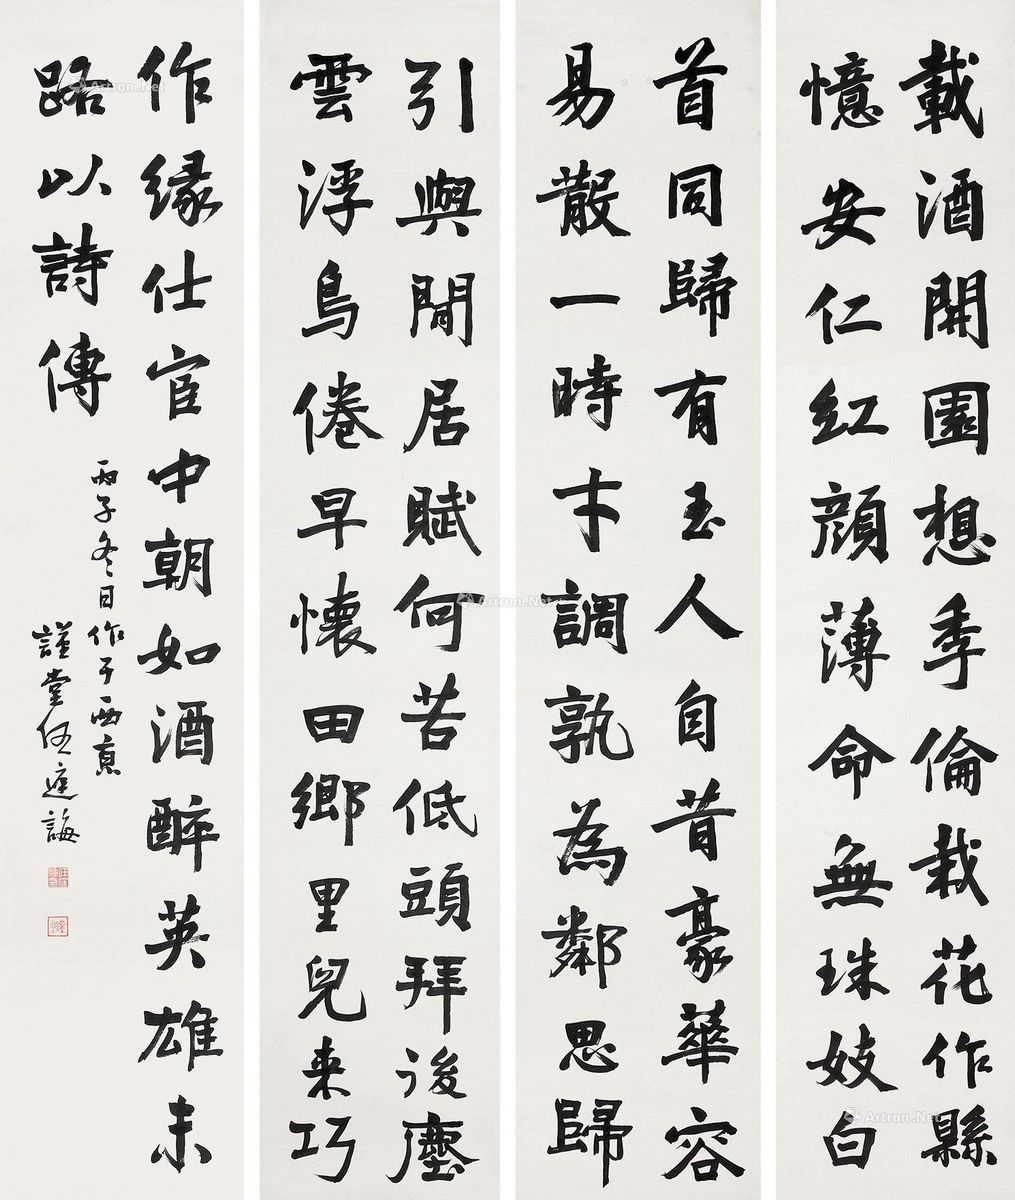 載酒開園想季倫栽花作縣
憶安仁紅顏薄命無珠妓白
首同歸有玉人自昔豪華容
易散一時才調孰為鄰思歸
引與閒居賦何苦低頭拜後塵
雲浮鳥倦早懷田鄉里兒來巧
作緣仕宦中朝如酒醉英雄末
路以詩傳
丙子冬日作于西京
謹堂任庭誨
Artron.Net
Artron.Net
Artron.Net